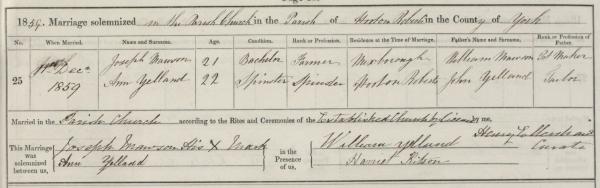 1859. Marriage solemnized in the Parish Church in the Parish of Hooton Roberts in the County of York
No. When Married. Name and Surname. Age. Condition. Rank or Profession. Residence at the Time of Marriage. Father's Name and Surname. Rank or Profession of Father.
25 Dec. 1859 Joseph Mawson 21 Bachelor Farmer Mexbrough William Mawson Maker
Ann Yelland 22 Spinster Spinster Hooton Roberts John Yelland Tailor
Married in the Parish Church according to the Rites and Ceremonies of the Established Church by me,
This Marriage was solemnized between us, Joseph Mawson His X Mark in the Presence of us, William Yelland Henry
Ann Yelland Harriet Curate